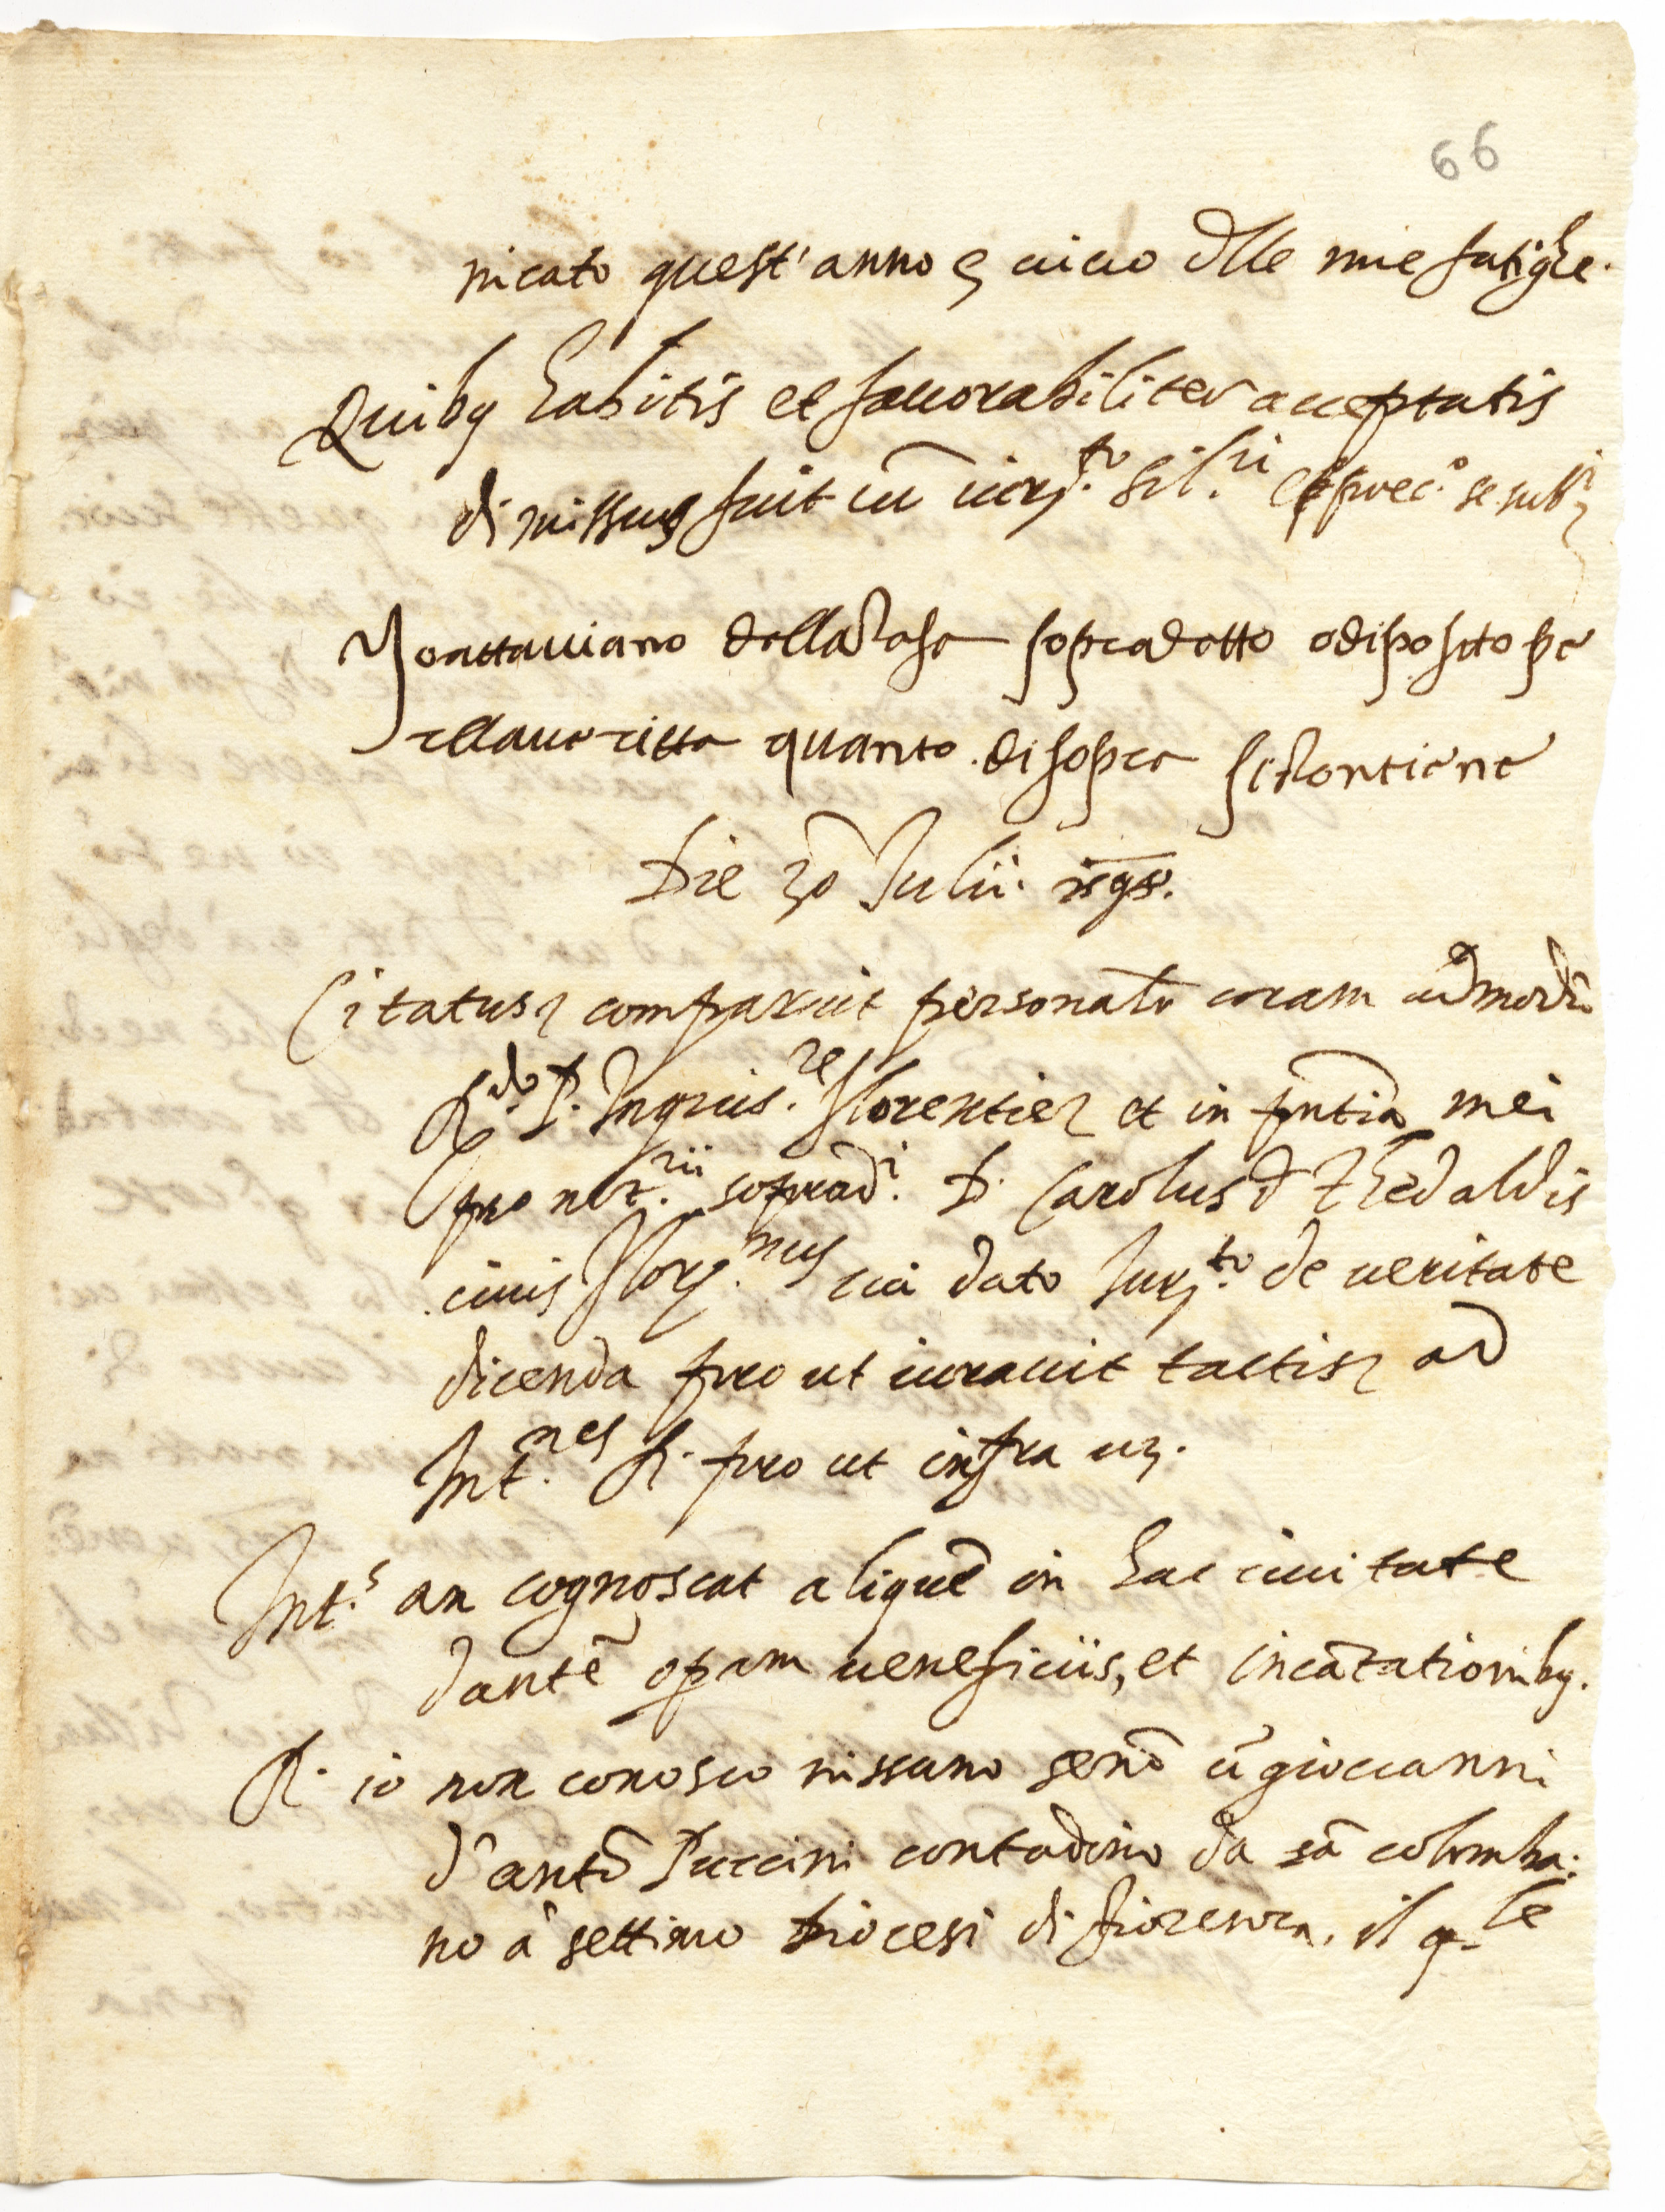 66
nicato quest'anno e uiuo dlle mie fatighe.
Quibȝ habitis et fauorabiliter acceptatis
dimissus fuit cū iurͭᵒ. silⁱⁱ et prec.° se subᵗ
Io ottauiano della Casa sopradetto o diposto pe
lla ueritta quanto di sopra si contiene
Die 30 Julii. 1595.
Citatus comparuit personalr coram admodū
R.do P. Inquis.re Florentie et in pñtia mei
pro not.rii soprad.i D. Carolus d Thedaldis
ciuis Flor.nus cui dato Jur.to de ueritate
dicenda pro ut iurauit tactis ad
Int.nes R. pro ut infra uȝ.
Int.s an cognoscat aliquē in hac ciuitate
dantē opam ueneficiis, et incātationibȝ.
R. io non conosco nissuno senō ū giouanni
d'antō Puccini contadino da sā colomba:
no à settimo diocesi di fiorenza, il q.le